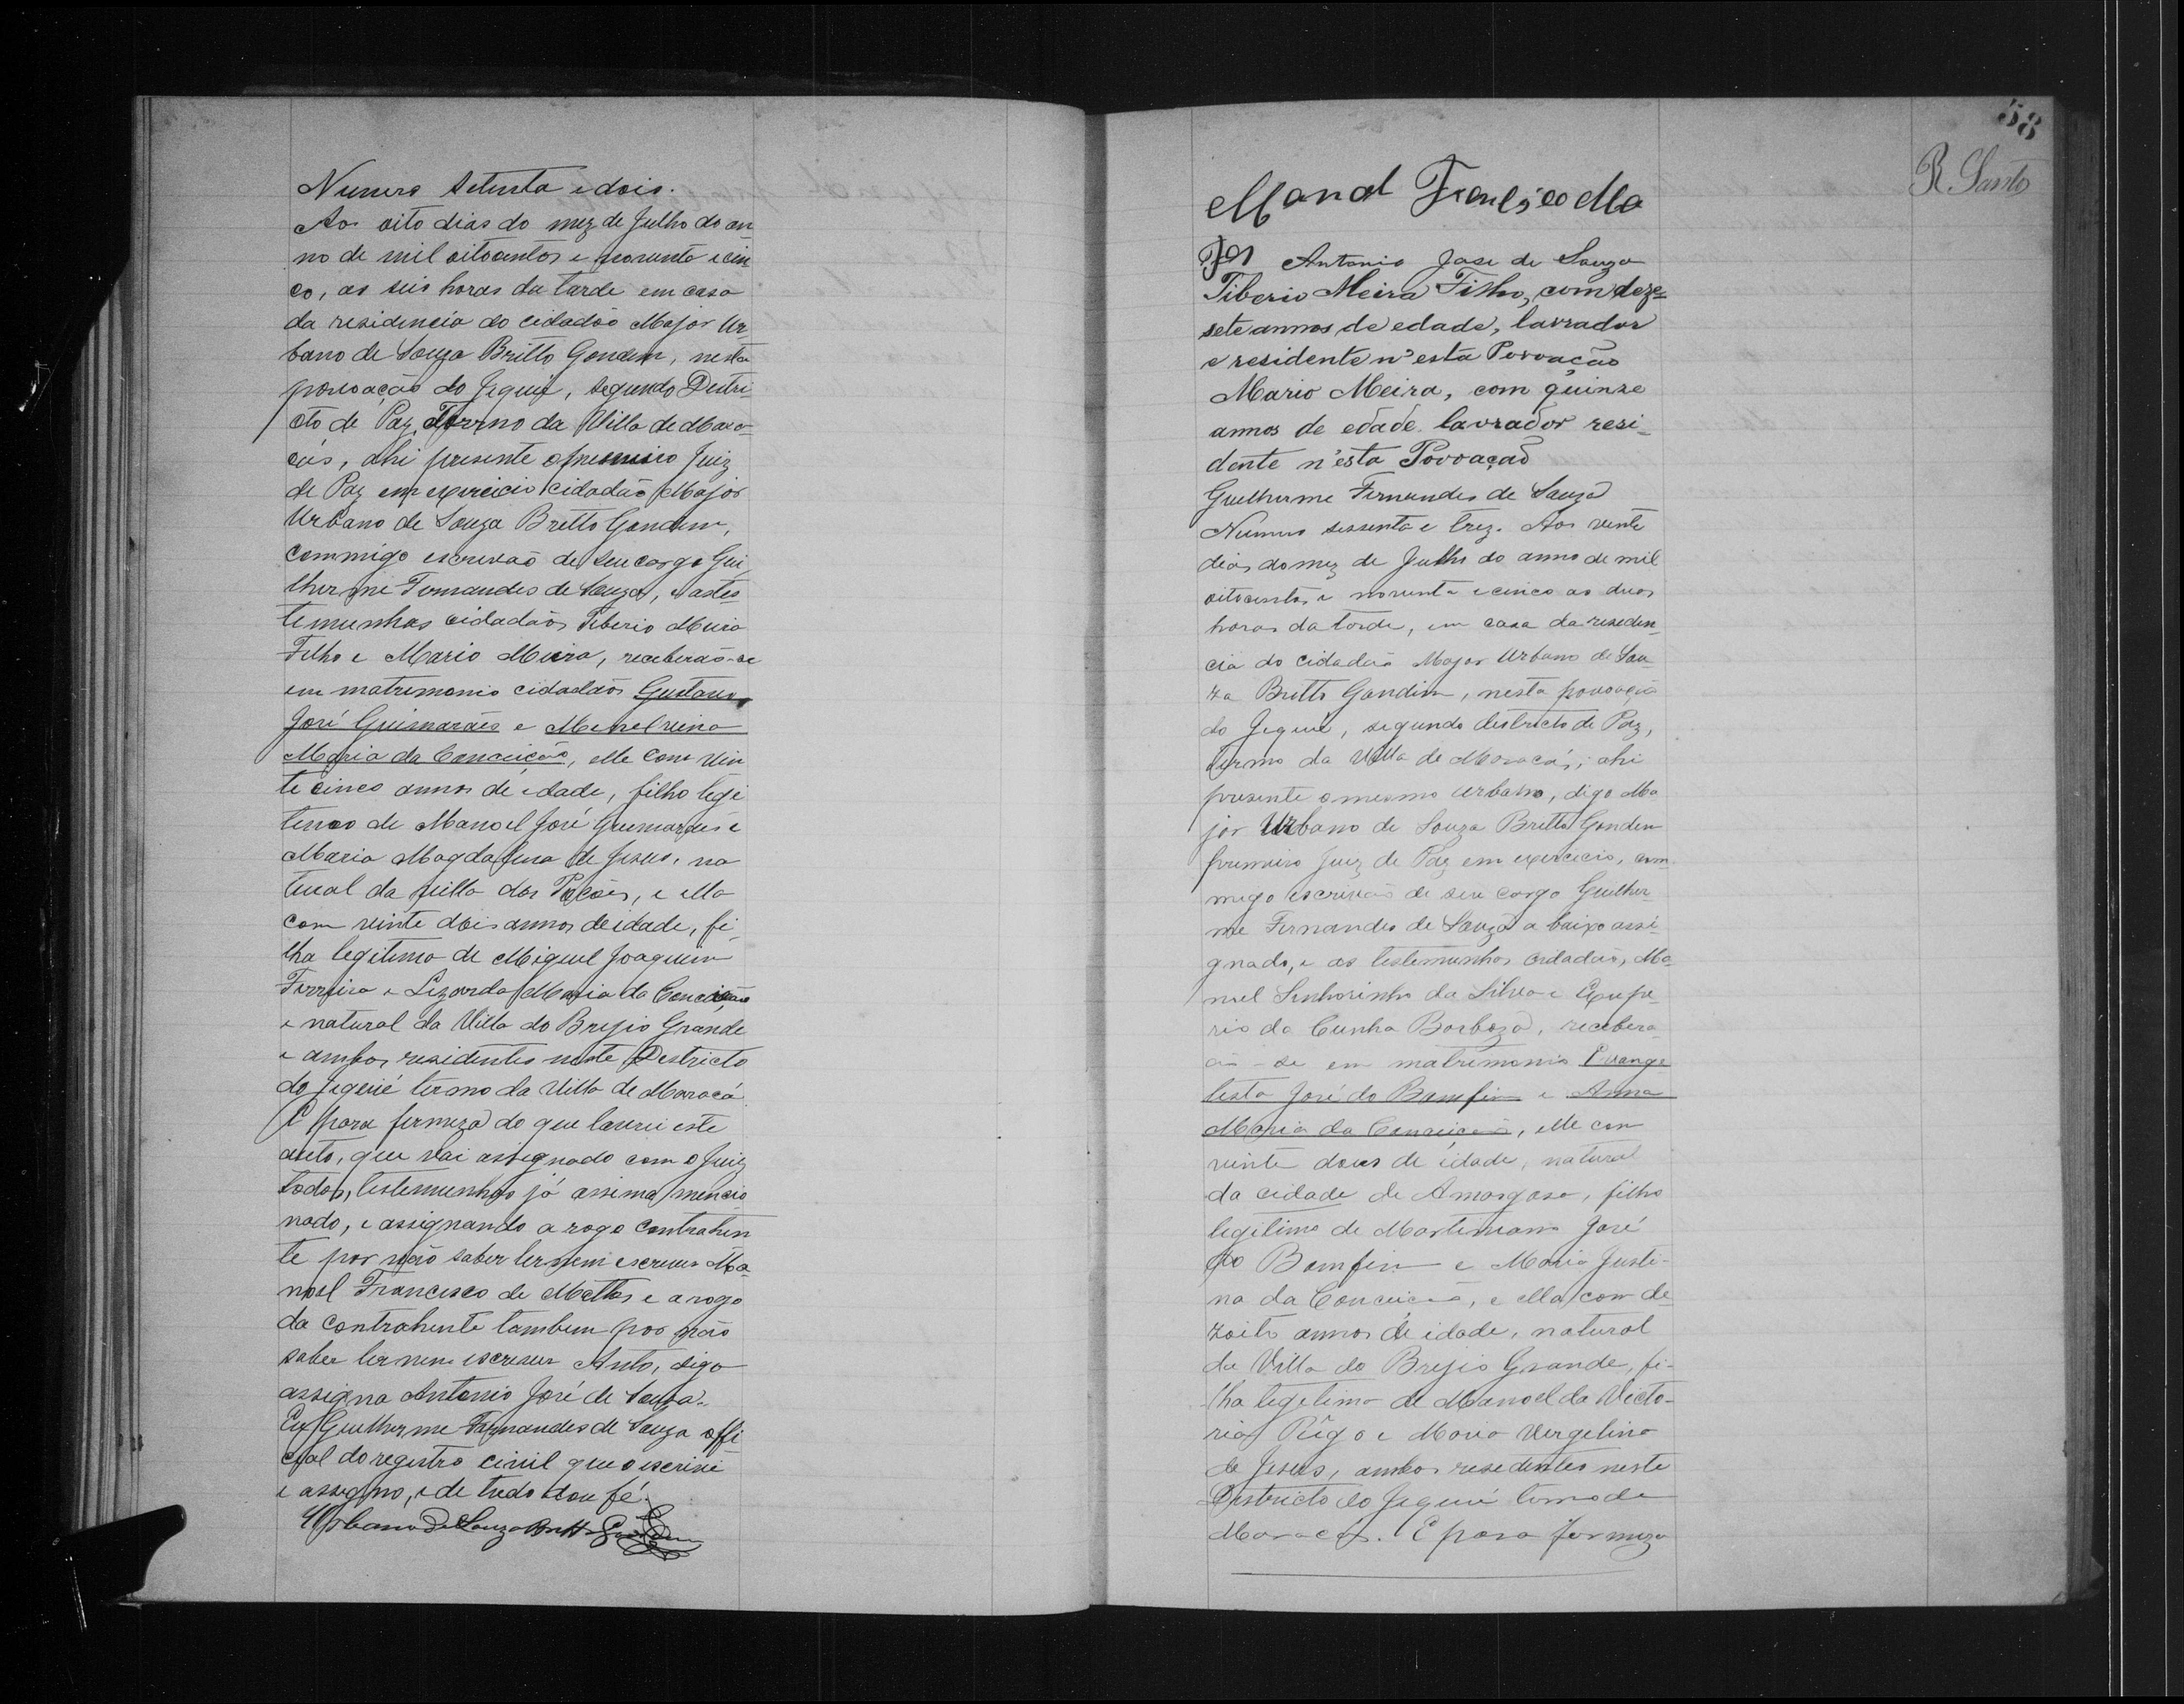 Numero Setenta e dois.
Aos oito dias do mez de Julho do an
no de mil oitocentos e noventa e cin
co, as seis horas da tarde em casa
da residencia do cidadão Major Ur
bano de Souza Britto Gondim, nesta
povoação do Jequié, segundo Destri
cto de Paz, Termo da Villa de Mara-
cás, ahi presente o primeiro Juiz
de Paz em exercicio cidadão Major
Urbano de Souza Britto Gondim,
commigo escrivão de seu cargo Gui
lherme Fernandes de Souza, e as tes
temunhas cidadãos Tiberio Meira
Filho e Mario Meira, receberão-se
em matrimonio cidadãos Gustavo
José Guimarães e Minelvina
Maria da Conceição, elle com vin
te cinco annos de idade, filho legi
timo de Manoel José Guimarães e
Maria Magdalena de Jesus, na
tural da villa dos Poções, e ella
com vinte dois annos de idade, fi
lha legitima de Miguel Joaquim
Ferreira e Lizarda Maria da Conceição
e natural da Villa do Brejio Grande
e ambos residentes neste Destricto
do Jequié termo da Villa de Maracá
E para firmeza do que lavrei este
auto, que vai assignado com o Juiz
todas, testemunhas já assima mencio
nado, e assignando a rogo contrahen
te por não saber ler nem escrever Ma
noel Francisco de Mattos e a rogo
da contrahente tambem por não
saber ler nem escrever Anto, digo
assigna Antonio José de Souza.
Eu Guilherme Fernandes de Souza offi
cial do registro civil que o escrivi
e assigno, e de tudo dou fé.
Urbano de Souza Britto Gondim
58
R. Santo
Manoel Francisco Ma
Antonio José de Souza
Tiberio Meira Filho, com deze-
sete annos de edade, lavrador
e residente n'esta Povoação
Mario Meira, com quinze
annos de edade, lavrador resi-
dente n'esta Povoação
Guilherme Fernandes de Souza
Numero sessenta e trez. Aos vinte
dias do mez de Julho do anno de mil
oitocentos e noventa e cinco as duas
horas da tarde, em casa da residen-
cia do cidadão Major Urbano de Sou
za Britto Gondim, nesta povoação
do Jequié, segundo destricto de Paz,
termo da Villa de Maracás, ahi
presente o mesmo Urbano, digo Ma
jor Urbano de Souza Britto Gondim
primeiro Juiz de Paz em exercicio, com
migo escrivão de seu cargo Guilher
me Fernandes de Souza a baixo assi-
gnado, e as testemunhas cidadãos, Ma
noel Senhorinho da Silva e Exupe-
rio da Cunha Barboza, recebera
ão-se em matrimonio Evange
lista José do Bomfim e Anna
Maria da Conceição, elle com
vinte dous de idade, natural
da cidade de Amargosa, filho
legitimo de Martiniano José
do Bomfim e Maria Justi-
na da Conceição, e ella com de
zoito annos de idade, natural
da Villa do Brejio Grande, fi-
lha legitima de Manoel da Victo-
ria Rigo e Maria Vergelina
de Jesus, ambos residentes neste
Destricto do Jequié termo de
Maracás. E para firmeza